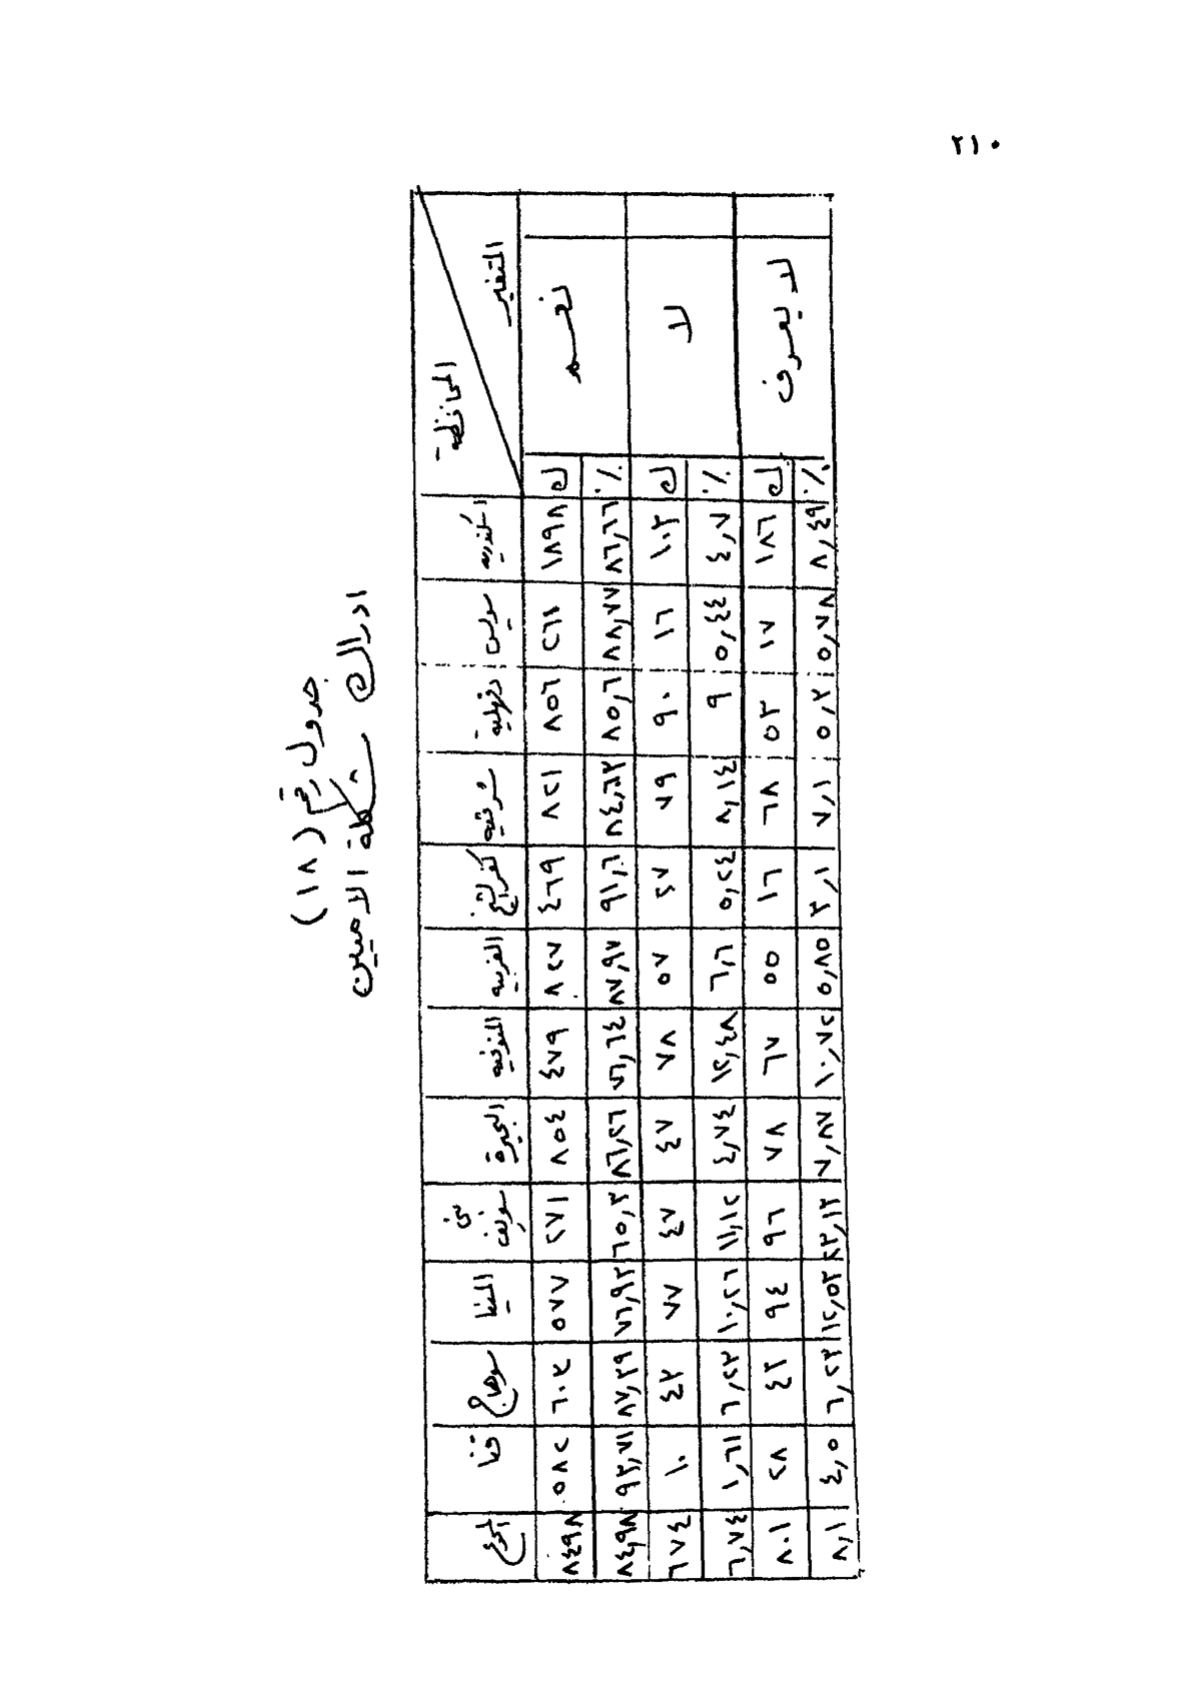 ٢١٠
جدول رقم (١٨)
ادراك مشكلة الاميين
المتغير المحافظة اسكندريه سويس دقهلية شرقيه كفر الشيخ الغربيه المنوفيه البحيرة بنى سويف المنيا سوهاج قنا المجموع
نعم ك ١٨٩٨ ٢٦١ ٨٥٦ ٨٢١ ٤٦٩ ٨٢٧ ٤٧٩ ٨٥٤ ٢٧١ ٥٧٧ ٦٠٣ ٥٨٢ ٨٤٩٨
٪ ٨٦,٦٦ ٨٨,٧٧ ٨٥,٦ ٨٤,٦٣ ٩١,٦ ٨٧,٩٧ ٧٦,٦٤ ٨٦,٢٦ ٦٥,٣ ٧٦,٩٣ ٨٧,٣٩ ٩٣,٧١ ٨٤,٩٨
لا ك ١٠٣ ١٦ ٩٠ ٧٩ ٢٧ ٥٧ ٧٨ ٤٧ ٤٧ ٧٧ ٤٣ ١٠ ٦٧٤
٪ ٤,٧ ٥,٤٤ ٩ ٨,١٤ ٥,٢٤ ٦,٦ ١٢,٤٨ ٤,٧٤ ١١,١٢ ١٠,٢٦ ٦,٢٣ ١,٦١ ٦,٧٤
لا يعرف ك ١٨٦ ١٧ ٥٣ ٦٨ ١٦ ٥٥ ٦٧ ٧٨ ٩٦ ٩٤ ٤٣ ٢٨ ٨٠١
٪ ٨,٤٩ ٥,٧٨ ٥,٣ ٧,١ ٣,١ ٥,٨٥ ١٠,٧٢ ٧,٨٧ ٢٣,١٣ ١٢,٥٣ ٦,٢٣ ٤,٥ ٨,١